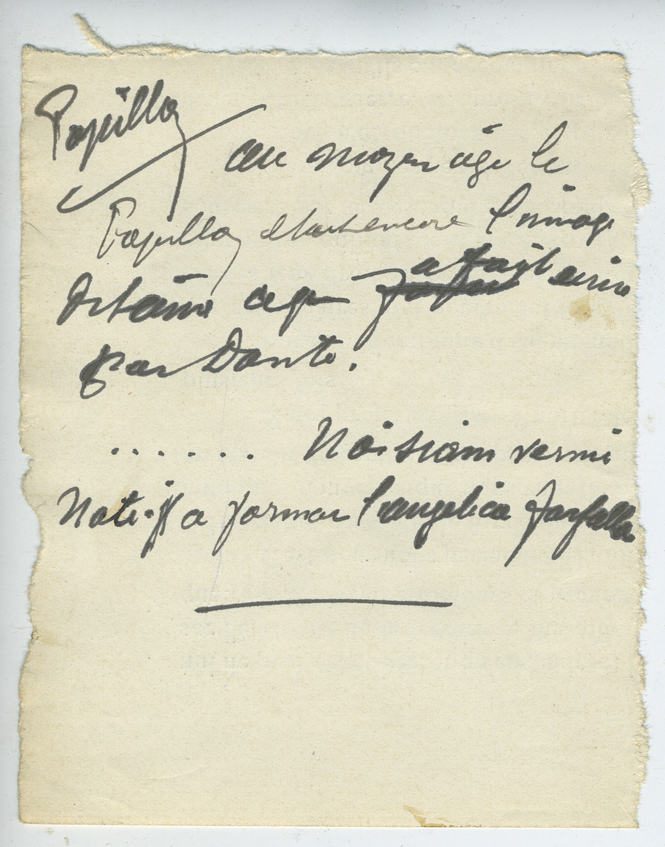 Papillon
au moyen âge le
Papillon était encore l'image
de l'âme ce qui a fait écrire
par Dante.
...... Noi siam vermi
Nati a formar l'angelica farfalla